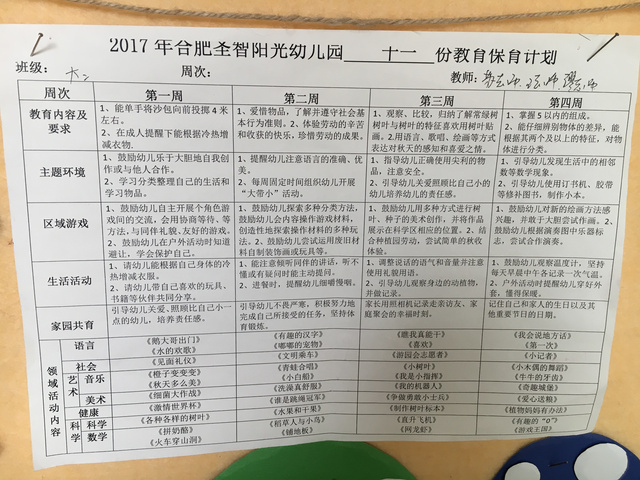 2017 年合肥圣智阳光幼儿园 十一 份教育保育计划
班级： 大二 周次： 教师：
周次 第一周 第二周 第三周 第四周
教育内容及要求
1、能单手将沙包向前投掷 4 米左右。
2、在成人提醒下能根据冷热增减衣物.
1、爱惜物品，了解并遵守社会基本行为准则。2、体验劳动的辛苦和收获的快乐，珍惜劳动的成果。
1、观察、比较，归纳了解常绿树树叶与树叶的特征喜欢用树叶贴画。2.用语言、歌唱、绘画等方式表达对秋天的感知和喜爱之情。
1、掌握 5 以内的组成。
2、能仔细辨别物体的差异，能根据其两个及以上的特征，对物体进行分类。
主题环境
1、鼓励幼儿乐于大胆地自我创作或与他人合作。
2、学习分类整理自己的生活和学习物品。
1、提醒幼儿注意语言的准确、优美。
2、每周固定时间组织幼儿开展“大带小”活动。
1、指导幼儿正确使用尖利的物品，注意安全。
2、引导幼儿关爱照顾比自己小的幼儿培养幼儿的责任感。
1、引导幼儿发现生活中的相邻数等数学现象。
2、引导幼儿使用订书机、胶带等修补图书，制作小本。
区域游戏
1、鼓励幼儿自主开展个角色游戏间的交流，会用协商等待、等方法，与同伴礼貌、友好的游戏。
2、鼓励幼儿在户外活动时知道避让，学会保护自己。
1、鼓励幼儿探索多种分类方法，鼓励幼儿会内容操作游戏材料，创造性地探索操作材料的多种玩法。2、鼓励幼儿尝试运用废旧材料自制装饰画或玩具等。
1、鼓励幼儿用多种方式进行树叶、种子的美术创作，并将作品展示在科学区相应的位置。2、结合种植园劳动，尝试简单的秋收体验。
1、鼓励幼儿对新的绘画方法感兴趣，并敢于大胆尝试作画。2、鼓励幼儿根据演奏图中乐器标志，尝试合作演奏。
生活活动
1、请幼儿能根据自己身体的冷热增减衣服。
2、请幼儿带自己喜欢的玩具、书籍等伙伴共同分享。
1、能注意倾听同伴的讲话，听不懂或有疑问时能主动提问。
2、进餐时，提醒幼儿细嚼慢咽。
1、调整说话的语气和音量并注意使用礼貌用语。
2、引导幼儿观察身边的动植物，并做记录。
1、鼓励幼儿观察温度计，坚持每天早晨中午各记录一次气温。
2、户外活动时提醒幼儿穿好外套，懂得保暖。
家园共育
引导幼儿关爱、照顾比自己小一点的幼儿，培养责任感。
引导幼儿不畏严寒，积极努力地完成自己所接受的任务，坚持体育锻炼。
家长用照相机记录走亲访友、家庭聚会的幸福时刻。
记住自己和家人的生日以及其他重要节日的日期。
领域活动内容
语言 《鹅大哥出门》 《有趣的汉字》 《瞧我真能干》 《我会说地方话》
《水的欢歌》 《嘟嘟的宠物》 《喜欢》 《第一次》
社会 《见面仪礼》 《文明乘车》 《游园会志愿者》 《小记者》
艺术 音乐 《橙子变变变》 《青蛙合唱》 《小树叶》 《小木偶的舞蹈》
《秋天多么美》 《小白船》 《我是小指挥》 《牛牛的牙齿》
美术 《细菌大作战》 《洗澡真舒服》 《我的机器人》 《奇趣城堡》
《激情世界杯》 《谁是跳绳冠军》 《争做勇敢小士兵》 《爱心送粮》
健康 《各种各样的树叶》 《水果和干果》 《制作树叶标本》 《植物妈妈有办法》
科学 科学 《稻草人与小鸟》 《直升飞机》 《有趣的“0”》
数学 《拼奶酪》 《铺地板》 《网龙虾》 《游戏王国》
《火车穿山洞》